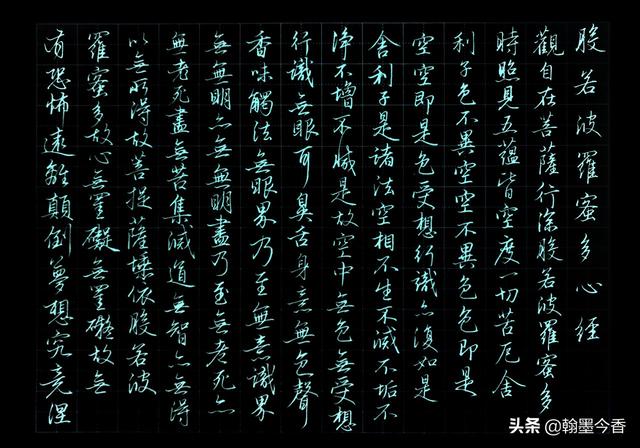 般若波羅蜜多心經
觀自在菩薩行深般若波羅蜜多
時照見五蘊皆空度一切苦厄舍
利子色不異空空不異色色即是
空空即是色受想行識亦復如是
舍利子是諸法空相不生不滅不垢不
淨不增不減是故空中無色無受想
行識無眼耳鼻舌身意無色聲
香味觸法無眼界乃至無意識界
無無明亦無無明盡乃至無老死亦
無老死盡無苦集滅道無智亦無得
以無所得故菩提薩埵依般若波
羅蜜多故心無罣礙無罣礙故無
有恐怖遠離顛倒夢想究竟涅
头条 @翰墨今香